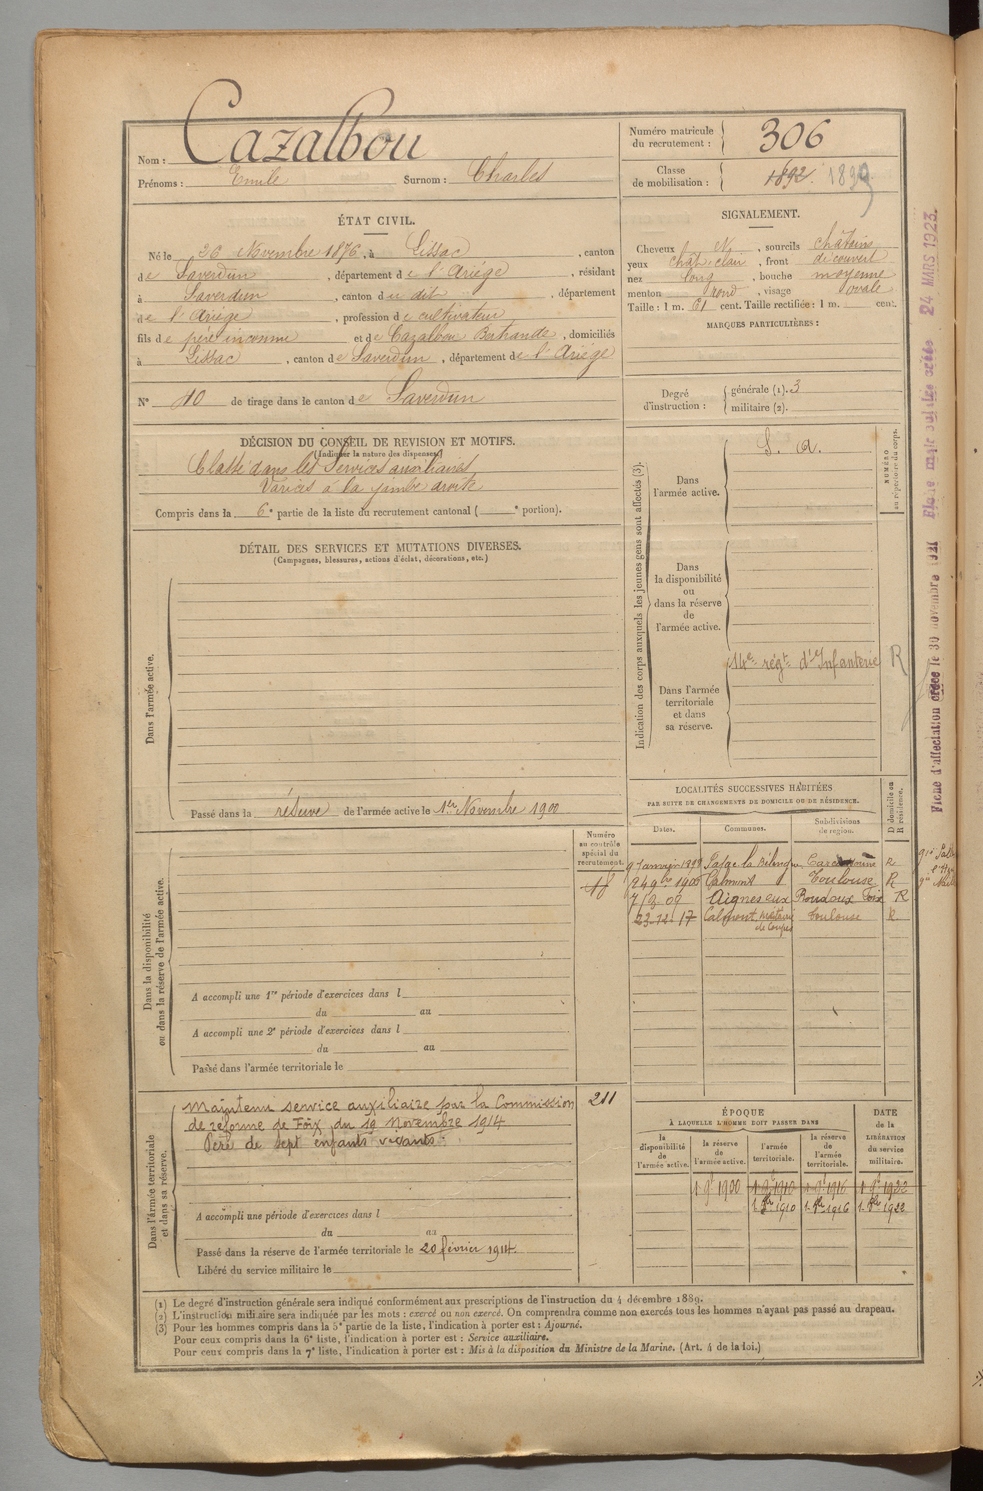 Nom : Cazalbou
Prénoms : Emile Surnom : Charles
Numéro matricule du recrutement : 306
Classe de mobilisation : 1892. 1899
ÉTAT CIVIL.
Né le 26 Novembre 1876, à Lissac, canton
de Saverdun, département de l'Ariège, résidant
à Saverdun, canton du dit, département
de l'Ariège, profession de cultivateur
fils de père inconnu et de Cazalbou Bertrande, domiciliés
à Lissac, canton de Saverdun, département de l'Ariège
N° 10 de tirage dans le canton de Saverdun
SIGNALEMENT.
Cheveux N, sourcils châtains
yeux chât clair, front découvert
nez long, bouche moyenne
menton rond, visage ovale
Taille : 1 m. 61 cent. Taille rectifiée : 1 m. cent.
MARQUES PARTICULIÈRES :
Degré d'instruction : générale (1). 3
militaire (2).
DÉCISION DU CONSEIL DE REVISION ET MOTIFS.
(Indiquer la nature des dispenses)
Classé dans les Services auxiliaires
Varices à la jambe droite
Compris dans la 6e partie de la liste du recrutement cantonal ( e portion).
DÉTAIL DES SERVICES ET MUTATIONS DIVERSES.
(Campagnes, blessures, actions d'éclat, décorations, etc.)
Dans l'armée active.
Passé dans la réserve de l'armée active le 1er Novembre 1900
Indication des corps auxquels les jeunes gens sont affectés (3).
NUMÉRO au répertoire du corps.
Dans l'armée active.
S. A.
Dans la disponibilité ou dans la réserve de l'armée active.
14e régt d'Infanterie R
Dans l'armée territoriale et dans sa réserve.
LOCALITÉS SUCCESSIVES HABITÉES
PAR SUITE DE CHANGEMENTS DE DOMICILE OU DE RÉSIDENCE.
Dates. Communes. Subdivisions de région. D domicile ou R résidence.
Carcassonne R
24 9bre 1900 Calmont Toulouse R
7/3 09 Foix R
23-12 17 Calmont Toulouse R
Numéro au contrôle spécial du recrutement.
18
Dans la disponibilité ou dans la réserve de l'armée active.
A accompli une 1re période d'exercices dans l
du au
A accompli une 2e période d'exercices dans l
du au
Passé dans l'armée territoriale le
Dans l'armée territoriale et dans sa réserve.
211
Maintenu service auxiliaire par la Commission
de réforme de Foix du 19 Novembre 1914
Père de sept enfants vivants.
A accompli une période d'exercices dans l
du au
Passé dans la réserve de l'armée territoriale le 20 février 1914
Libéré du service militaire le
ÉPOQUE
À LAQUELLE L'HOMME DOIT PASSER DANS
la disponibilité de l'armée active. la réserve de l'armée active. l'armée territoriale. la réserve de l'armée territoriale.
DATE de la LIBÉRATION du service militaire.
1 9e 1900 1 9e 1910 1 9e 1916 1 9e 1922
1. 8bre 1910 1. 8bre 1916 1. 8bre 1922
(1) Le degré d'instruction générale sera indiqué conformément aux prescriptions de l'instruction du 4 décembre 1889.
(2) L'instruction militaire sera indiquée par les mots : exercé ou non exercé. On comprendra comme non exercés tous les hommes n'ayant pas passé au drapeau.
(3) Pour les hommes compris dans la 5e partie de la liste, l'indication à porter est : Ajourné.
Pour ceux compris dans la 6e liste, l'indication à porter est : Service auxiliaire.
Pour ceux compris dans la 7e liste, l'indication à porter est : Mis à la disposition du Ministre de la Marine. (Art. 4 de la loi.)
Fiche d'affectation créée le 30 novembre 1921
24 MARS 1923